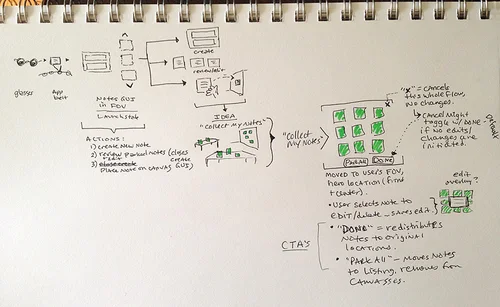 glasses
App
Notes GUI
in FOV
Launchstate
create
review/edit
ACTIONS:
1) create New Note
2) review Parked Notes (closes
"edit create
3) close create GUI)
Place Note on CANVAS
IDEA
"collect my Notes"
"collect
my Notes"
PARK All
Done
MOVED TO USER'S FOV,
hero location (front
+ center).
• User selects Note to
edit/delete - saves edit.
"X" = CANCELS
this whole flow,
No changes.
CANCEL might
toggle w/DONE -
if No edits/
changes are
initiated.
Default
edit
overlay?
CTA's
• "DONE" = redistributes
Notes to original
locations.
• "PARK All" - Moves Notes
to listing, removes from
CANVASSES.